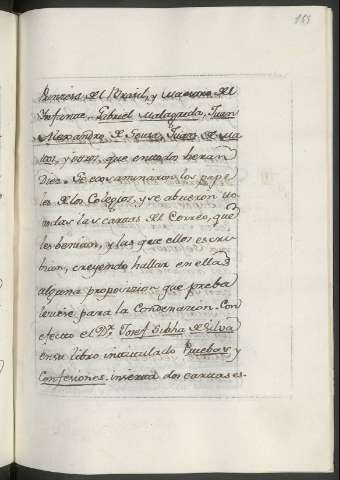 165
Princesa del Brasil, y Maestro del
Infante, Gabriel Malagrida, Juan
Alexandro de Souza, Juan de Ma
tos, y otros, que en todos heran
Diez. Se examinaron los pape
les de los Colegios, y se abrieron to
das las cartas del Correo, que
les benian, y las que ellos escri
bian, creyendo hallar en ellas
alguna proposicion que preba
leciere para la Condenazion. Con
efecto el Dr. Josef Siabra de Silva
en su libro inticulado Pruebas y
Confesiones, inserta dos cartas es